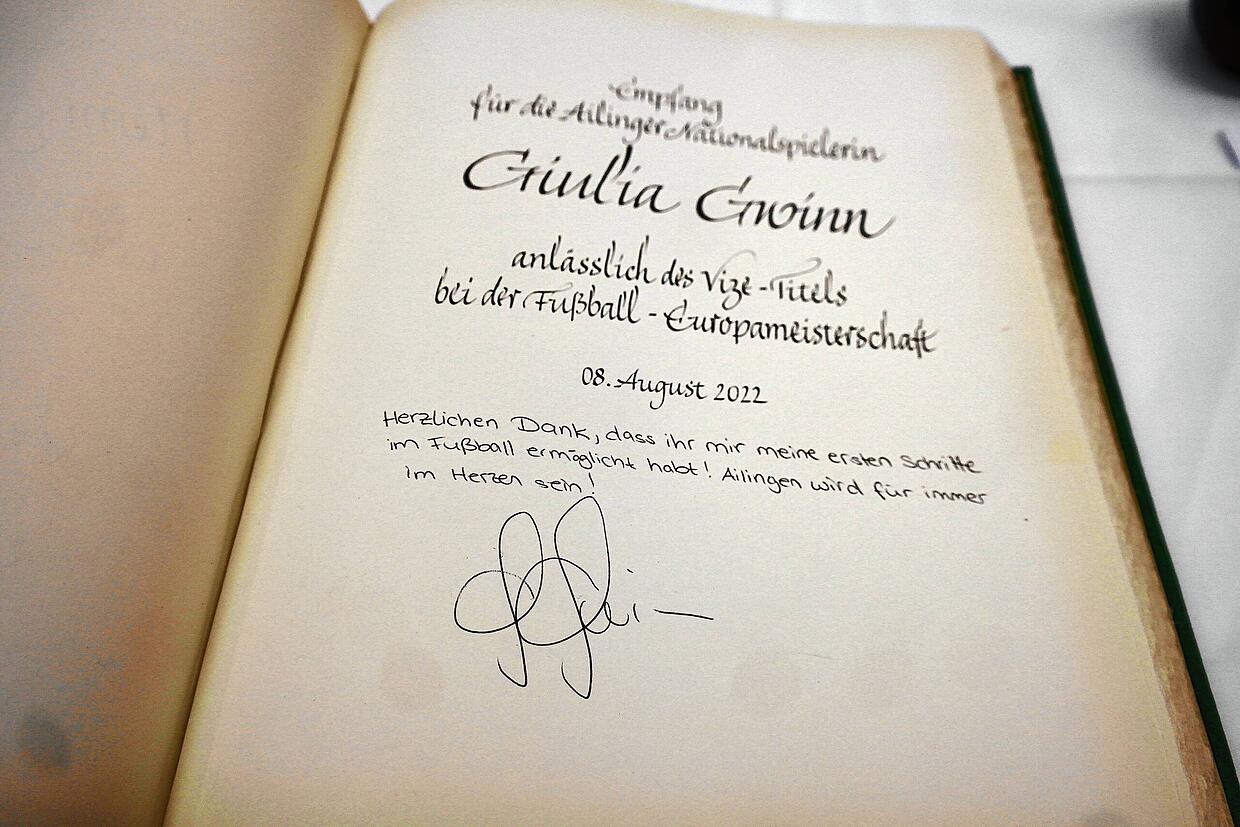 Empfang
für die Ailinger Nationalspielerin
Giulia Gwinn
anlässlich des Vize-Titels
bei der Fußball-Europameisterschaft
08. August 2022
Herzlichen Dank, dass ihr mir meine ersten Schritte
im Fußball ermöglicht habt! Ailingen wird für immer
im Herzen sein!